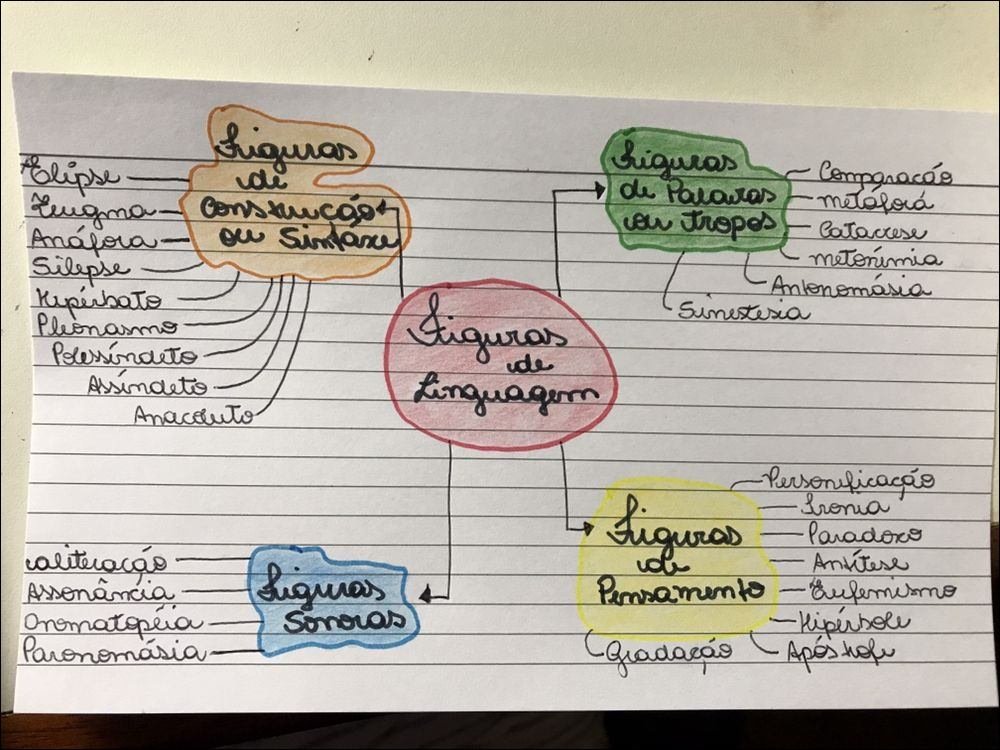 Figuras
de
Construção
ou Sintaxe
Elipse
Zeugma
Anáfora
Silepse
Hipérbato
Pleonasmo
Polissíndeto
Assíndeto
Anacoluto
Figuras
de Palavras
ou tropos
Comparação
metáfora
Catacrese
metonímia
Antonomásia
Sinestesia
Figuras
de
Linguagem
Figuras
Sonoras
aliteração
Assonância
Onomatopéia
Paronomásia
Figuras
de
Pensamento
Personificação
Ironia
Paradoxo
Antítese
Eufemismo
Hipérbole
Apóstrofe
Gradação